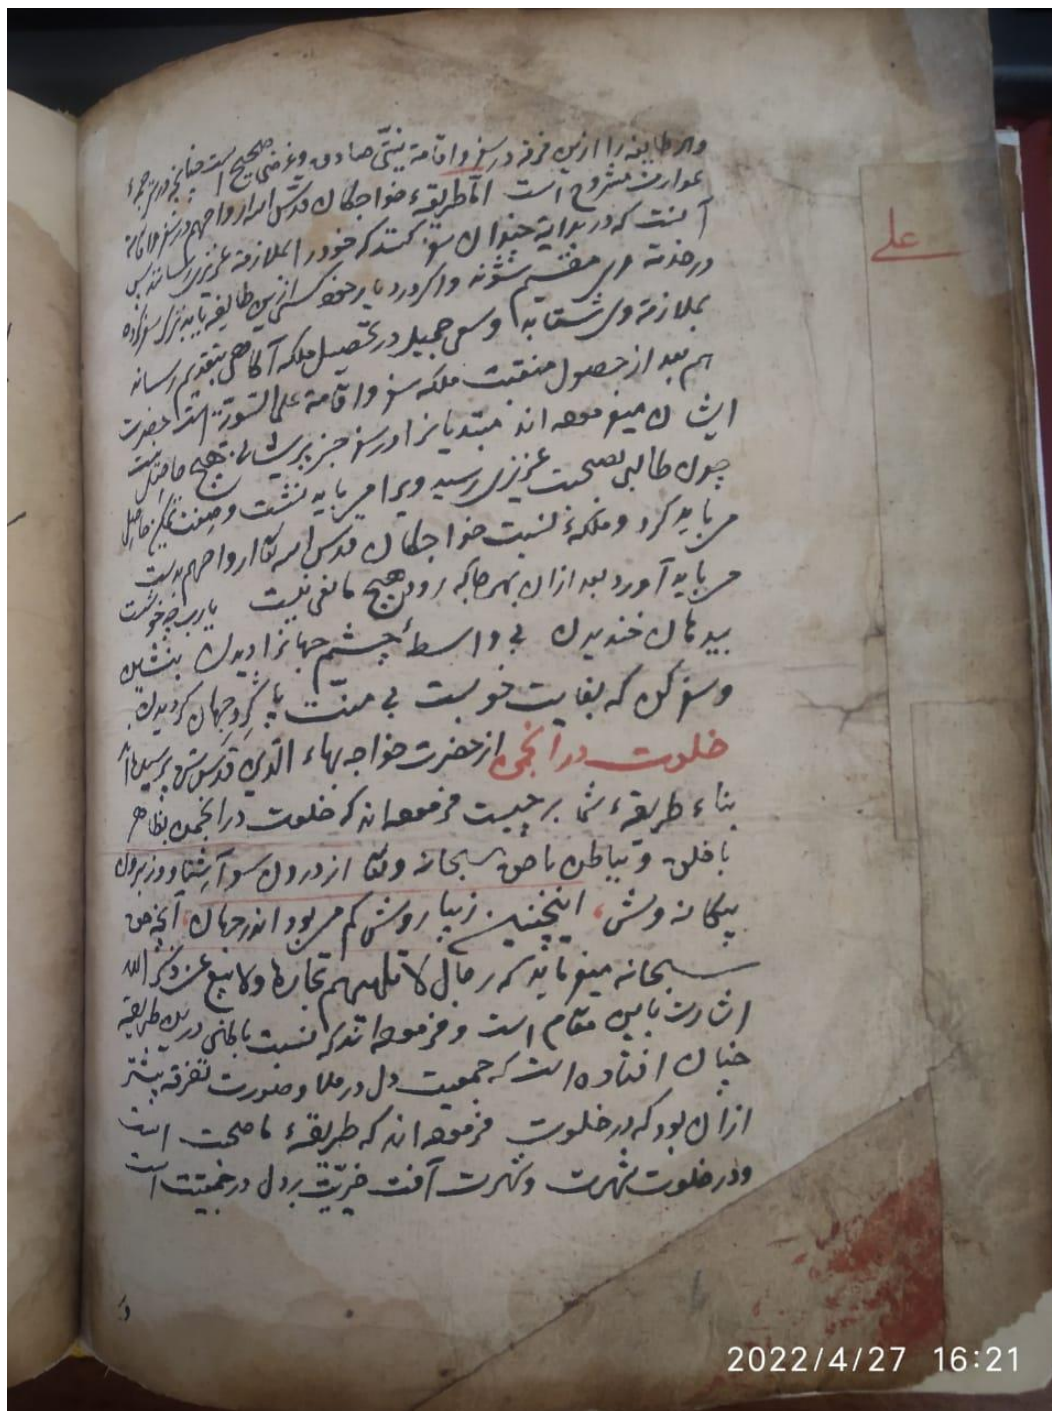 و هر طایفه را ازین فرقه در سفر و اقامة نیتی صادق و غرضی صحیح است چنانچه در ترجمهٔ
عوارف مشروح است امّا طریقهٔ خواجکان قدس الله ارواحهم در سفر و اقامة
آنست که در بدایة چندان سفر کنند که خود را بملازمة عزیزی رسانند پس
در خدمة وی مقیم شوند و اکر در دیار خود کسی ازین طایفه یابد ترک سفر کرده
بملازمة وی شتابد و سعی جمیل در تحصیل ملکه آکاهی بتقدیم رساند
هم بعد از حصول منقبت ملکه سفر و اقامة علی السّویّة است حضرت
ایشان میفرموده اند مبتدیانرا در سفر جز پریشانی هیچ حاصل نیست
چون طالبی بصحبت عزیزی رسید ویرا می باید نشست و صفت تمکین حاصل
می باید کرد و ملکهٔ نسبت خواجکان قدس الله تعالی ارواحهم بدست
می باید آورد بعد ازان بهر جا که رود هیچ مانعی نیست یارب چه خوشست
بیدهان خندیدن بی واسطهٔ چشم جهانرا دیدن بنشین
و سفر کن که بغایت خوبست بی منّت پا کرد جهان کردیدن
خلوت در انجمن از حضرت خواجه بهاء الدّین قدس سرّه پرسیدند
بناء طریقهٔ شما بر چیست فرموده اند که خلوت در انجمن بظاهر
با خلق و بباطن با حق سبحانه و تعالی از درون سو آشنا و وز برون
بیکانه وش اینچنین زیبا روش کم می بود اندر جهان آنچه حق
سبحانه میفرماید که رجال لا تلهیهم تجارة ولا بیع عن ذکر الله
اشارت باین مقام است و فرموده اند که نسبت باطنی درین طریقه
چنان افتاده است که جمعیت دل در ملا و صورت تفرقه بیشتر
ازان بود که در خلوت فرموده اند که طریقهٔ ما صحبت است
و در خلوت شهرت و شهرت آفت خیریّت بر دل در جمعیّت است
علی
2022/4/27 16:21